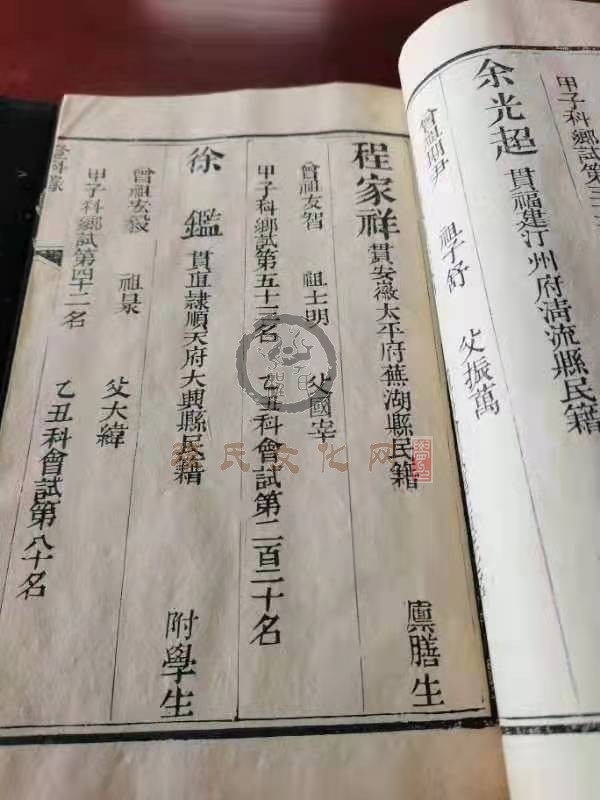 甲子科鄉試第三
余光超 貫福建汀州府清流縣民籍
祖子舒 父振萬
程家祥 貫安徽太平府蕪湖縣民籍 廩膳生
曾祖友智 祖士明 父國宰
甲子科鄉試第五十三名 乙丑科會試第二百二十名
徐鑑 貫直隸順天府大興縣民籍 附學生
曾祖安毅 祖泉 父大緯
甲子科鄉試第四十二名 乙丑科會試第八十名
登科錄
氏文化网